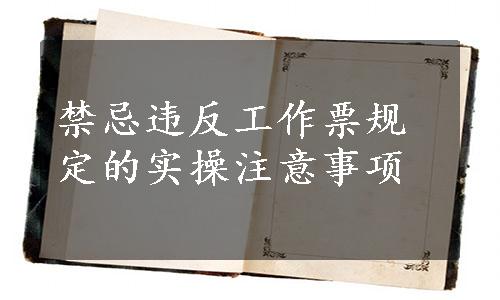 禁忌违反工作票规
定的实操注意事项